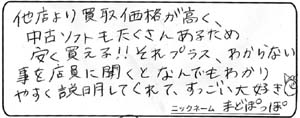 他店より買取価格が高く、
中古ソフトもたくさんあるため
安く買える!!それプラス、わからない
事を店員に聞くとなんでもわかり
やすく説明してくれて、すっごい大好き
ニックネーム まどぽっぽ